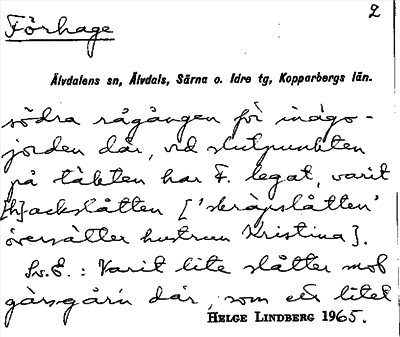 Förhage
2
Älvdalens sn, Älvdals, Särna o. Idre tg, Kopparbergs län.
södra rågången för inägo-
jorden där, vid slutpunkten
på täkten har F. legat, varit
[h]ackslåtten ['skräpslåtten'
översätter hustrun Kristina].
Lv.E.: Varit lite slåtter mot
gàrsgår'n där, som ett litet
HELGE LINDBERG 1965.